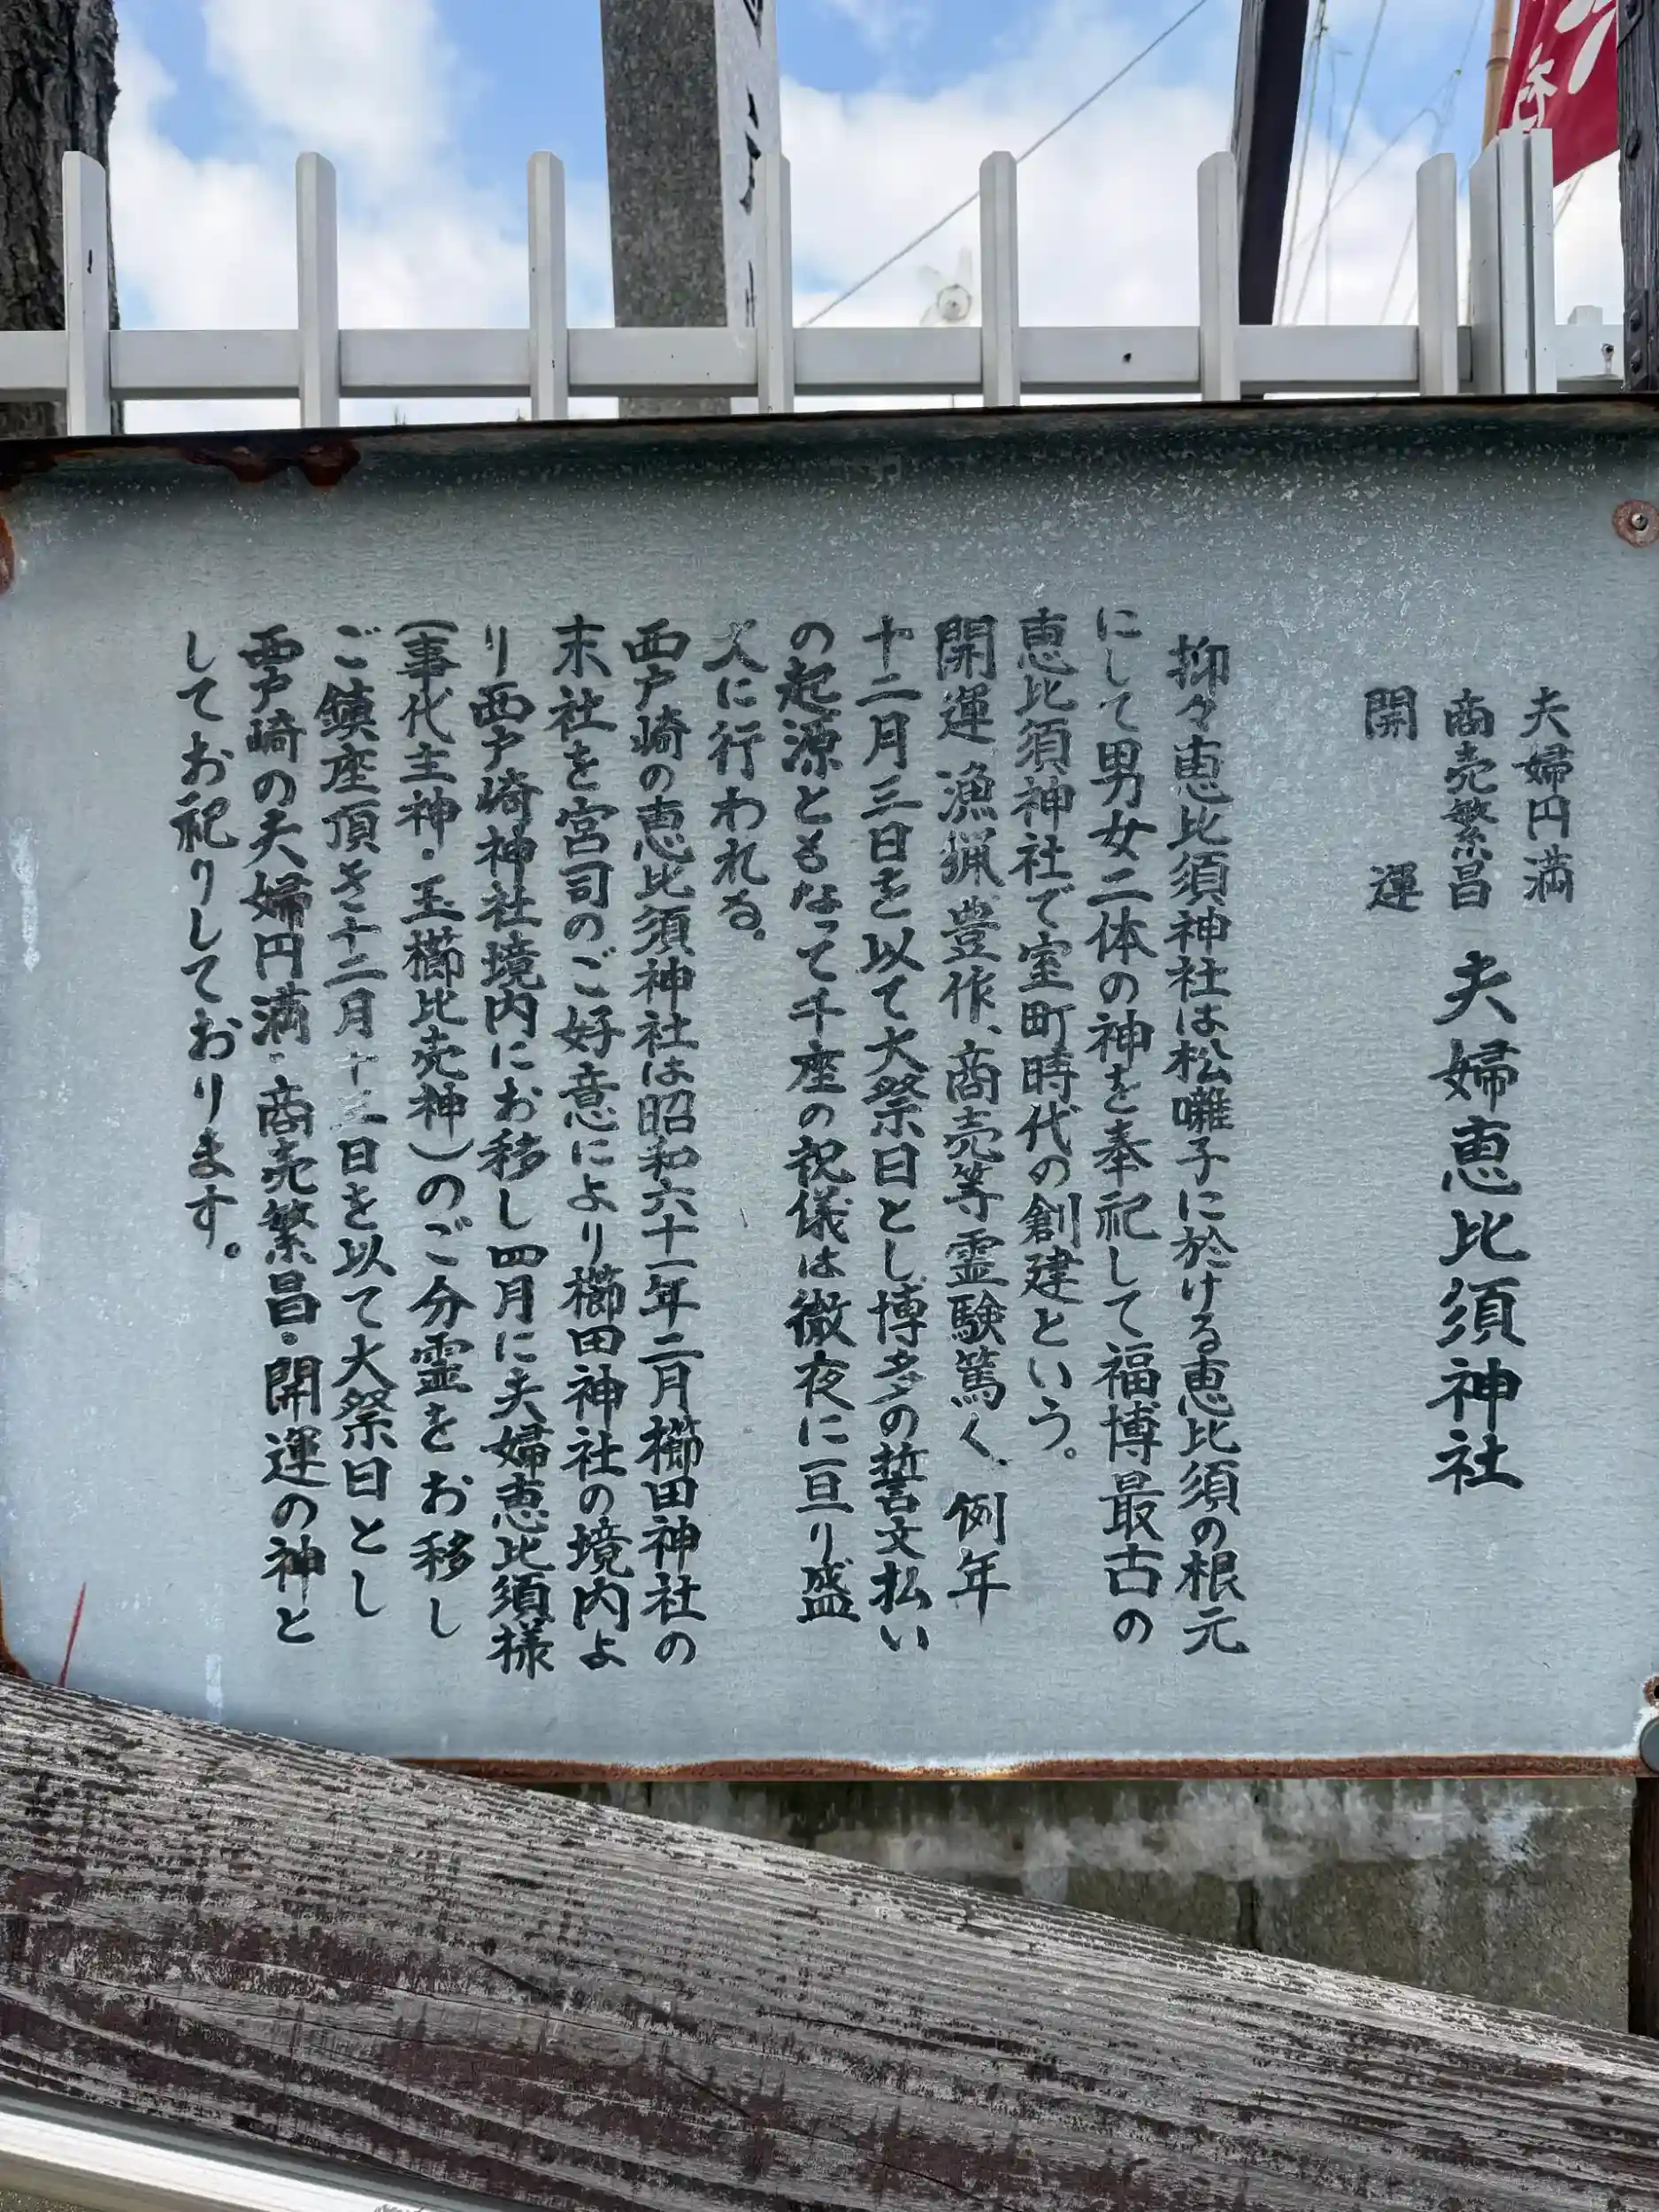 夫婦円満
商売繁昌
開運
夫婦恵比須神社
抑々恵比須神社は松囃子に於ける恵比須の根元
にして男女二体の神を奉祀して福博最古の
恵比須神社で室町時代の創建という。
開運漁猟豊作、商売等霊験篤く、例年
十二月三日を以て大祭日とし博多の誓文払い
の起源ともなって千座の祝儀は徹夜に亘り盛
大に行われる。
西戸崎の恵比須神社は昭和六十一年二月櫛田神社の
末社を宮司のご好意により櫛田神社の境内よ
り西戸崎神社境内にお移し四月に夫婦恵比須様
(事代主神・玉櫛比売神)のご分霊をお移し
ご鎮座頂き十二月 日を以て大祭日とし
西戸崎の夫婦円満・商売繁昌・開運の神と
してお祀りしております。